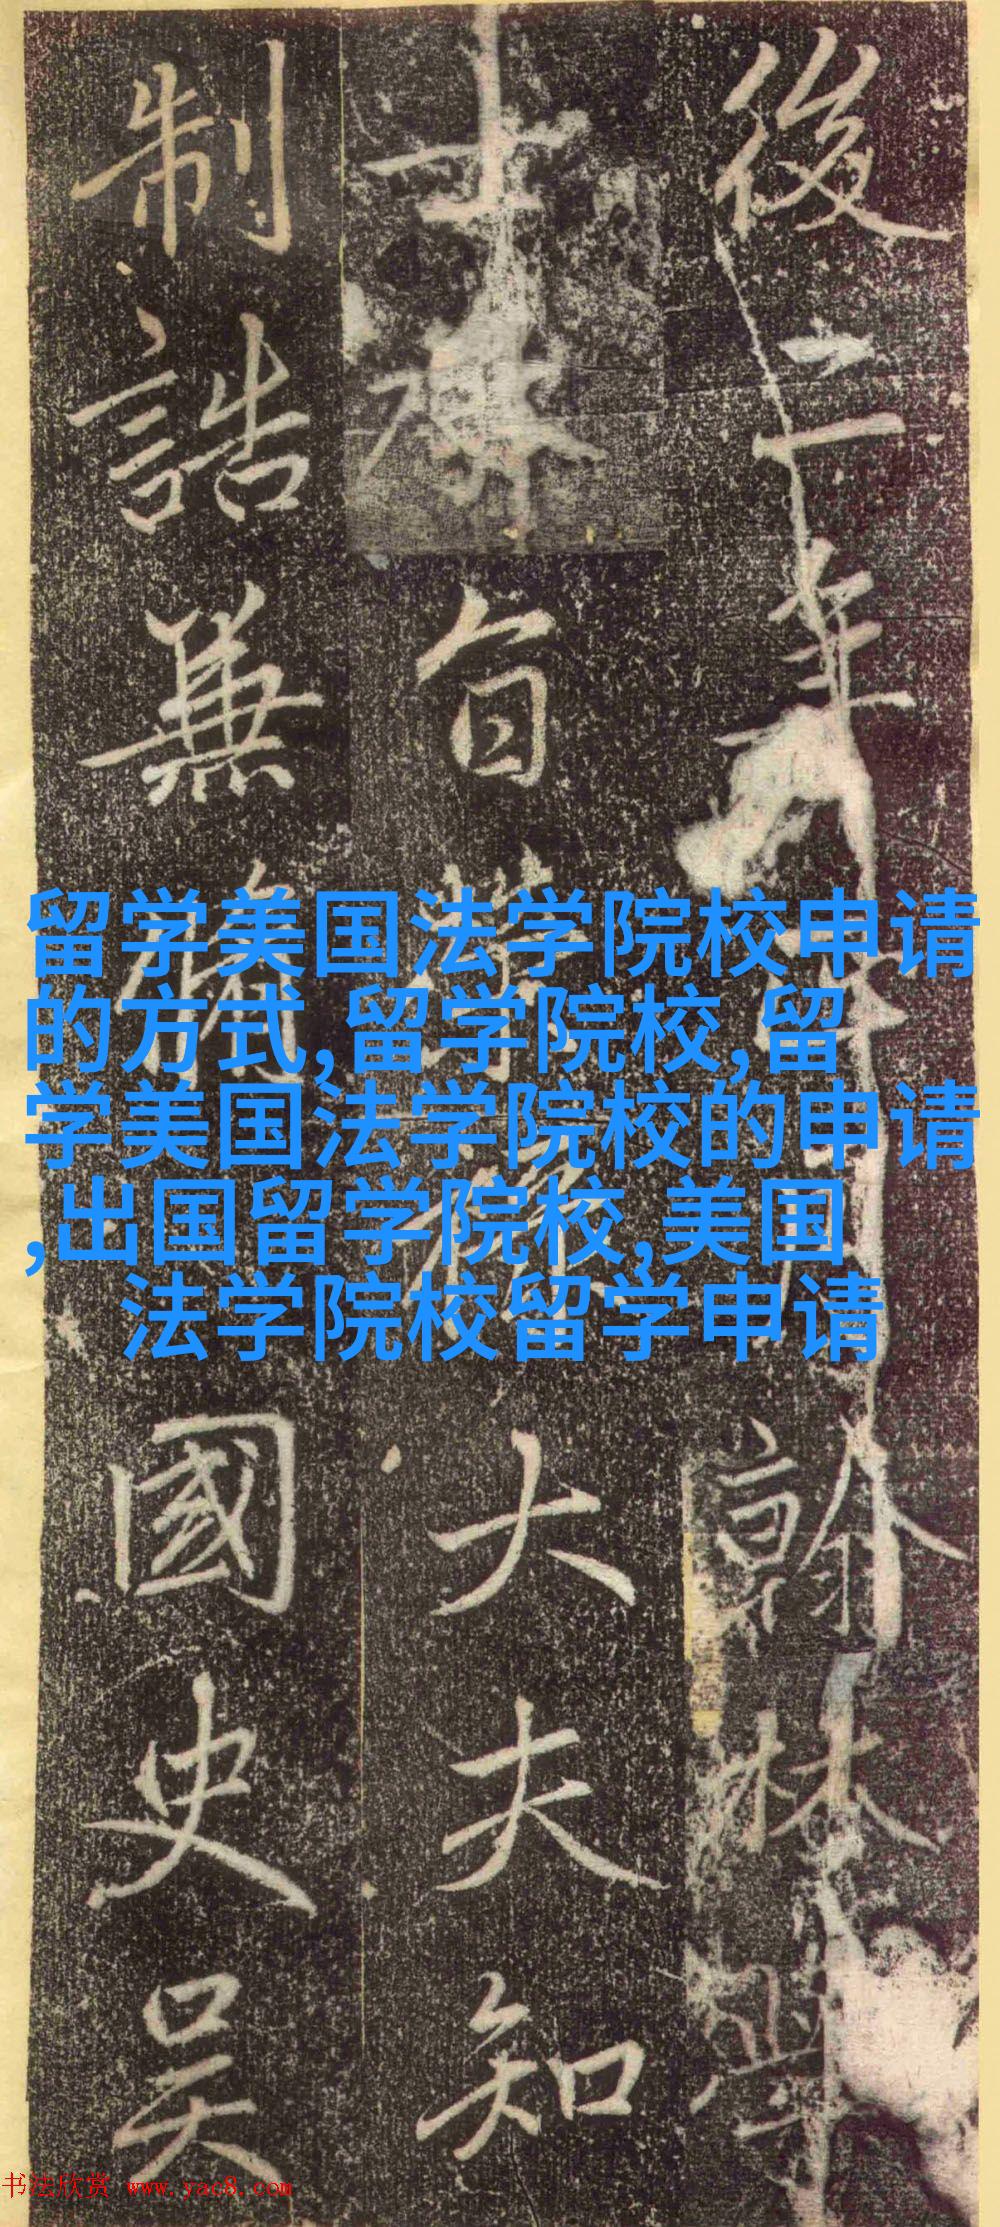 後二年翰林學
士旨榮祿大夫知
制誥兼國史吳
留学美国法学院校申请
的方式,留学院校,留
学美国法学院校的申请
,出国留学院校,美国
法学院校留学申请
书法欣赏 www.yac8.com